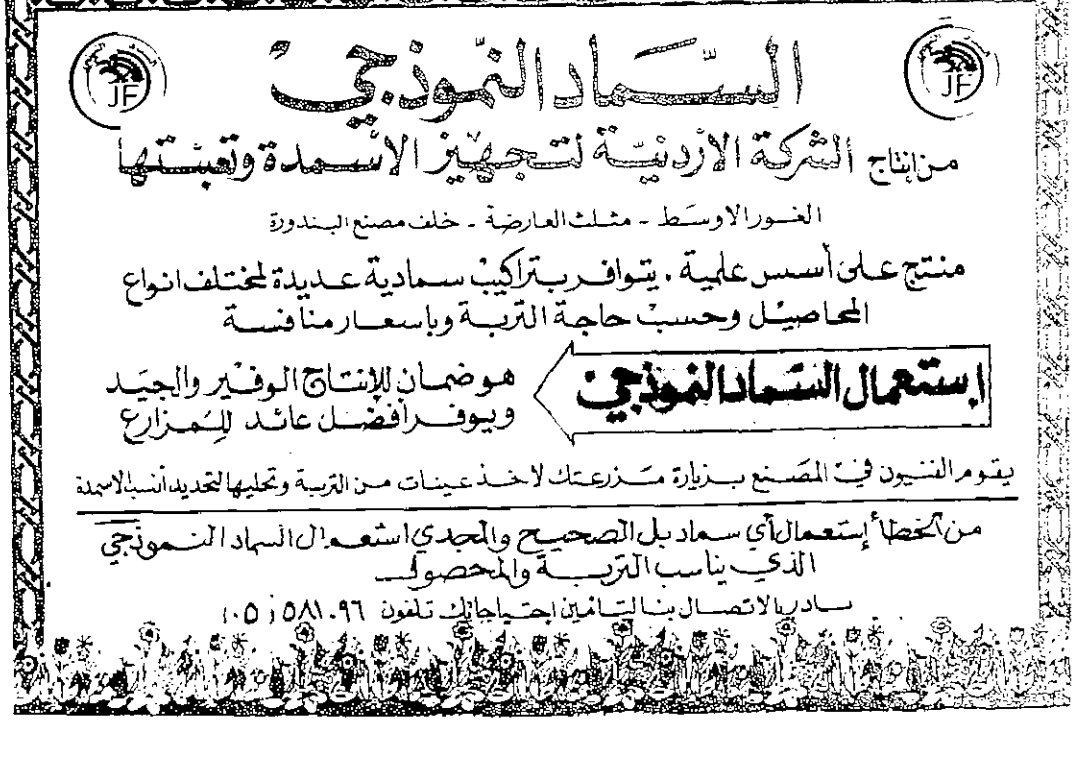 السّماد النّموذجي
JF
JF
من إنتاج الشركة الأردنيّة لتجهيز الأسمدة وتعبئتها
الغور الاوسَط - مثلث العارضة - خلف مصنع البندورة
منتج على أسس علمية . يتوافر بتراكيب سمادية عديدة لمختلف انواع
المحاصيل وحسب حاجة التربة وباسعار منافسة
إستعمال السّماد النموذجي
هو ضمان للإنتاج الوفير والجيّد
ويوفر افضل عائد للمزارع
يقوم الفنيون في المصَنع بزيارة مَزرعتك لاخذ عينات من التربة وتحليلها لتحديد أنسب الاسمدة
من الخطأ إستعمال أي سماد بل الصحيح والمجدي استعمال السماد النموذجي
الذي يناسب التربة والمحصول
بادر بالاتصال بنا لتامين إحتياجاتك تلفون ٥٨١٠٩٦